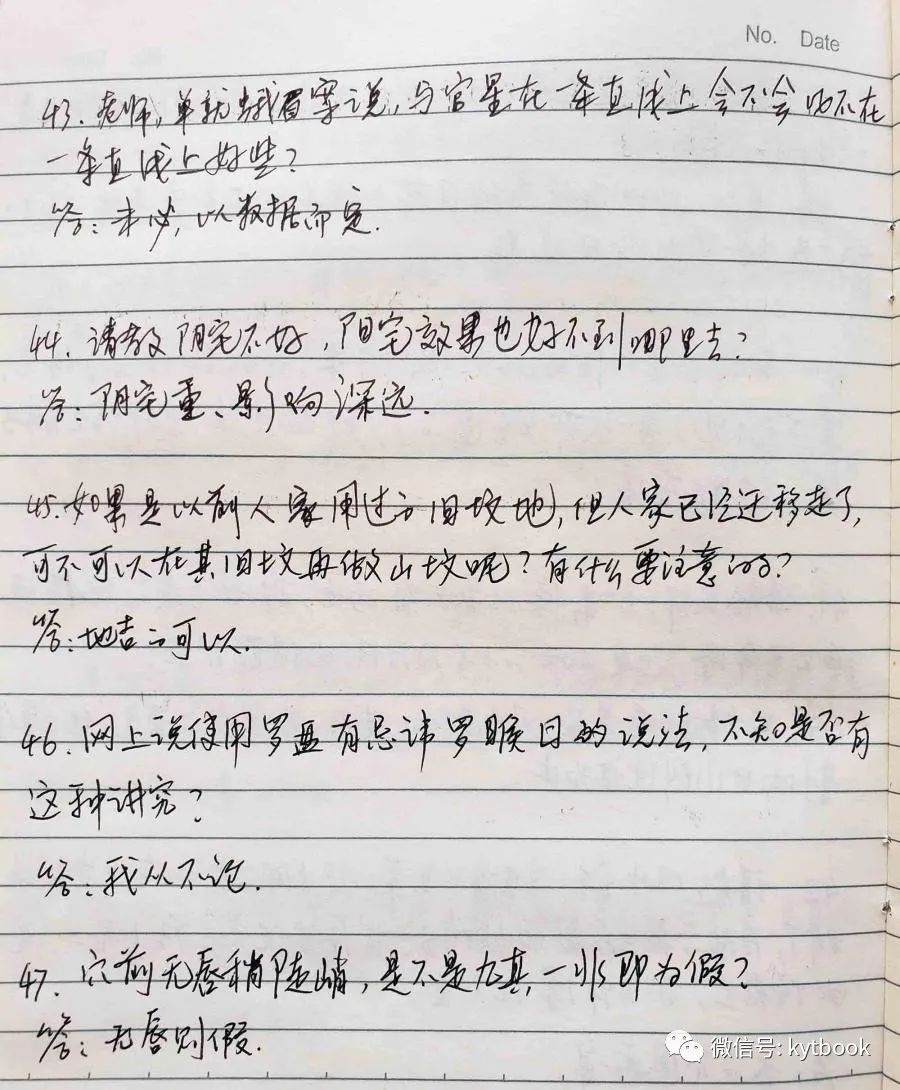 No. Date
43. 老师,单就峨眉案说,与官星在一条直线上会不会比不在
一条直线上好些?
答:未必,以数据而定.
44. 请教阴宅不好,阳宅效果也好不到哪里去?
答:阴宅重、影响深远.
45. 如果是以前人家用过的旧坟地,但人家已经迁移走了,
可不可以在其旧坟再做山坟呢?有什么要注意的?
答:地吉的可以.
46. 网上说使用罗盘有忌讳罗睺日的说法,不知是否有
这种讲究?
答:我从不论.
47. 穴前无唇稍陡峭,是不是尤其,一 即为假?
答:无唇则假.
微信号: kytbook